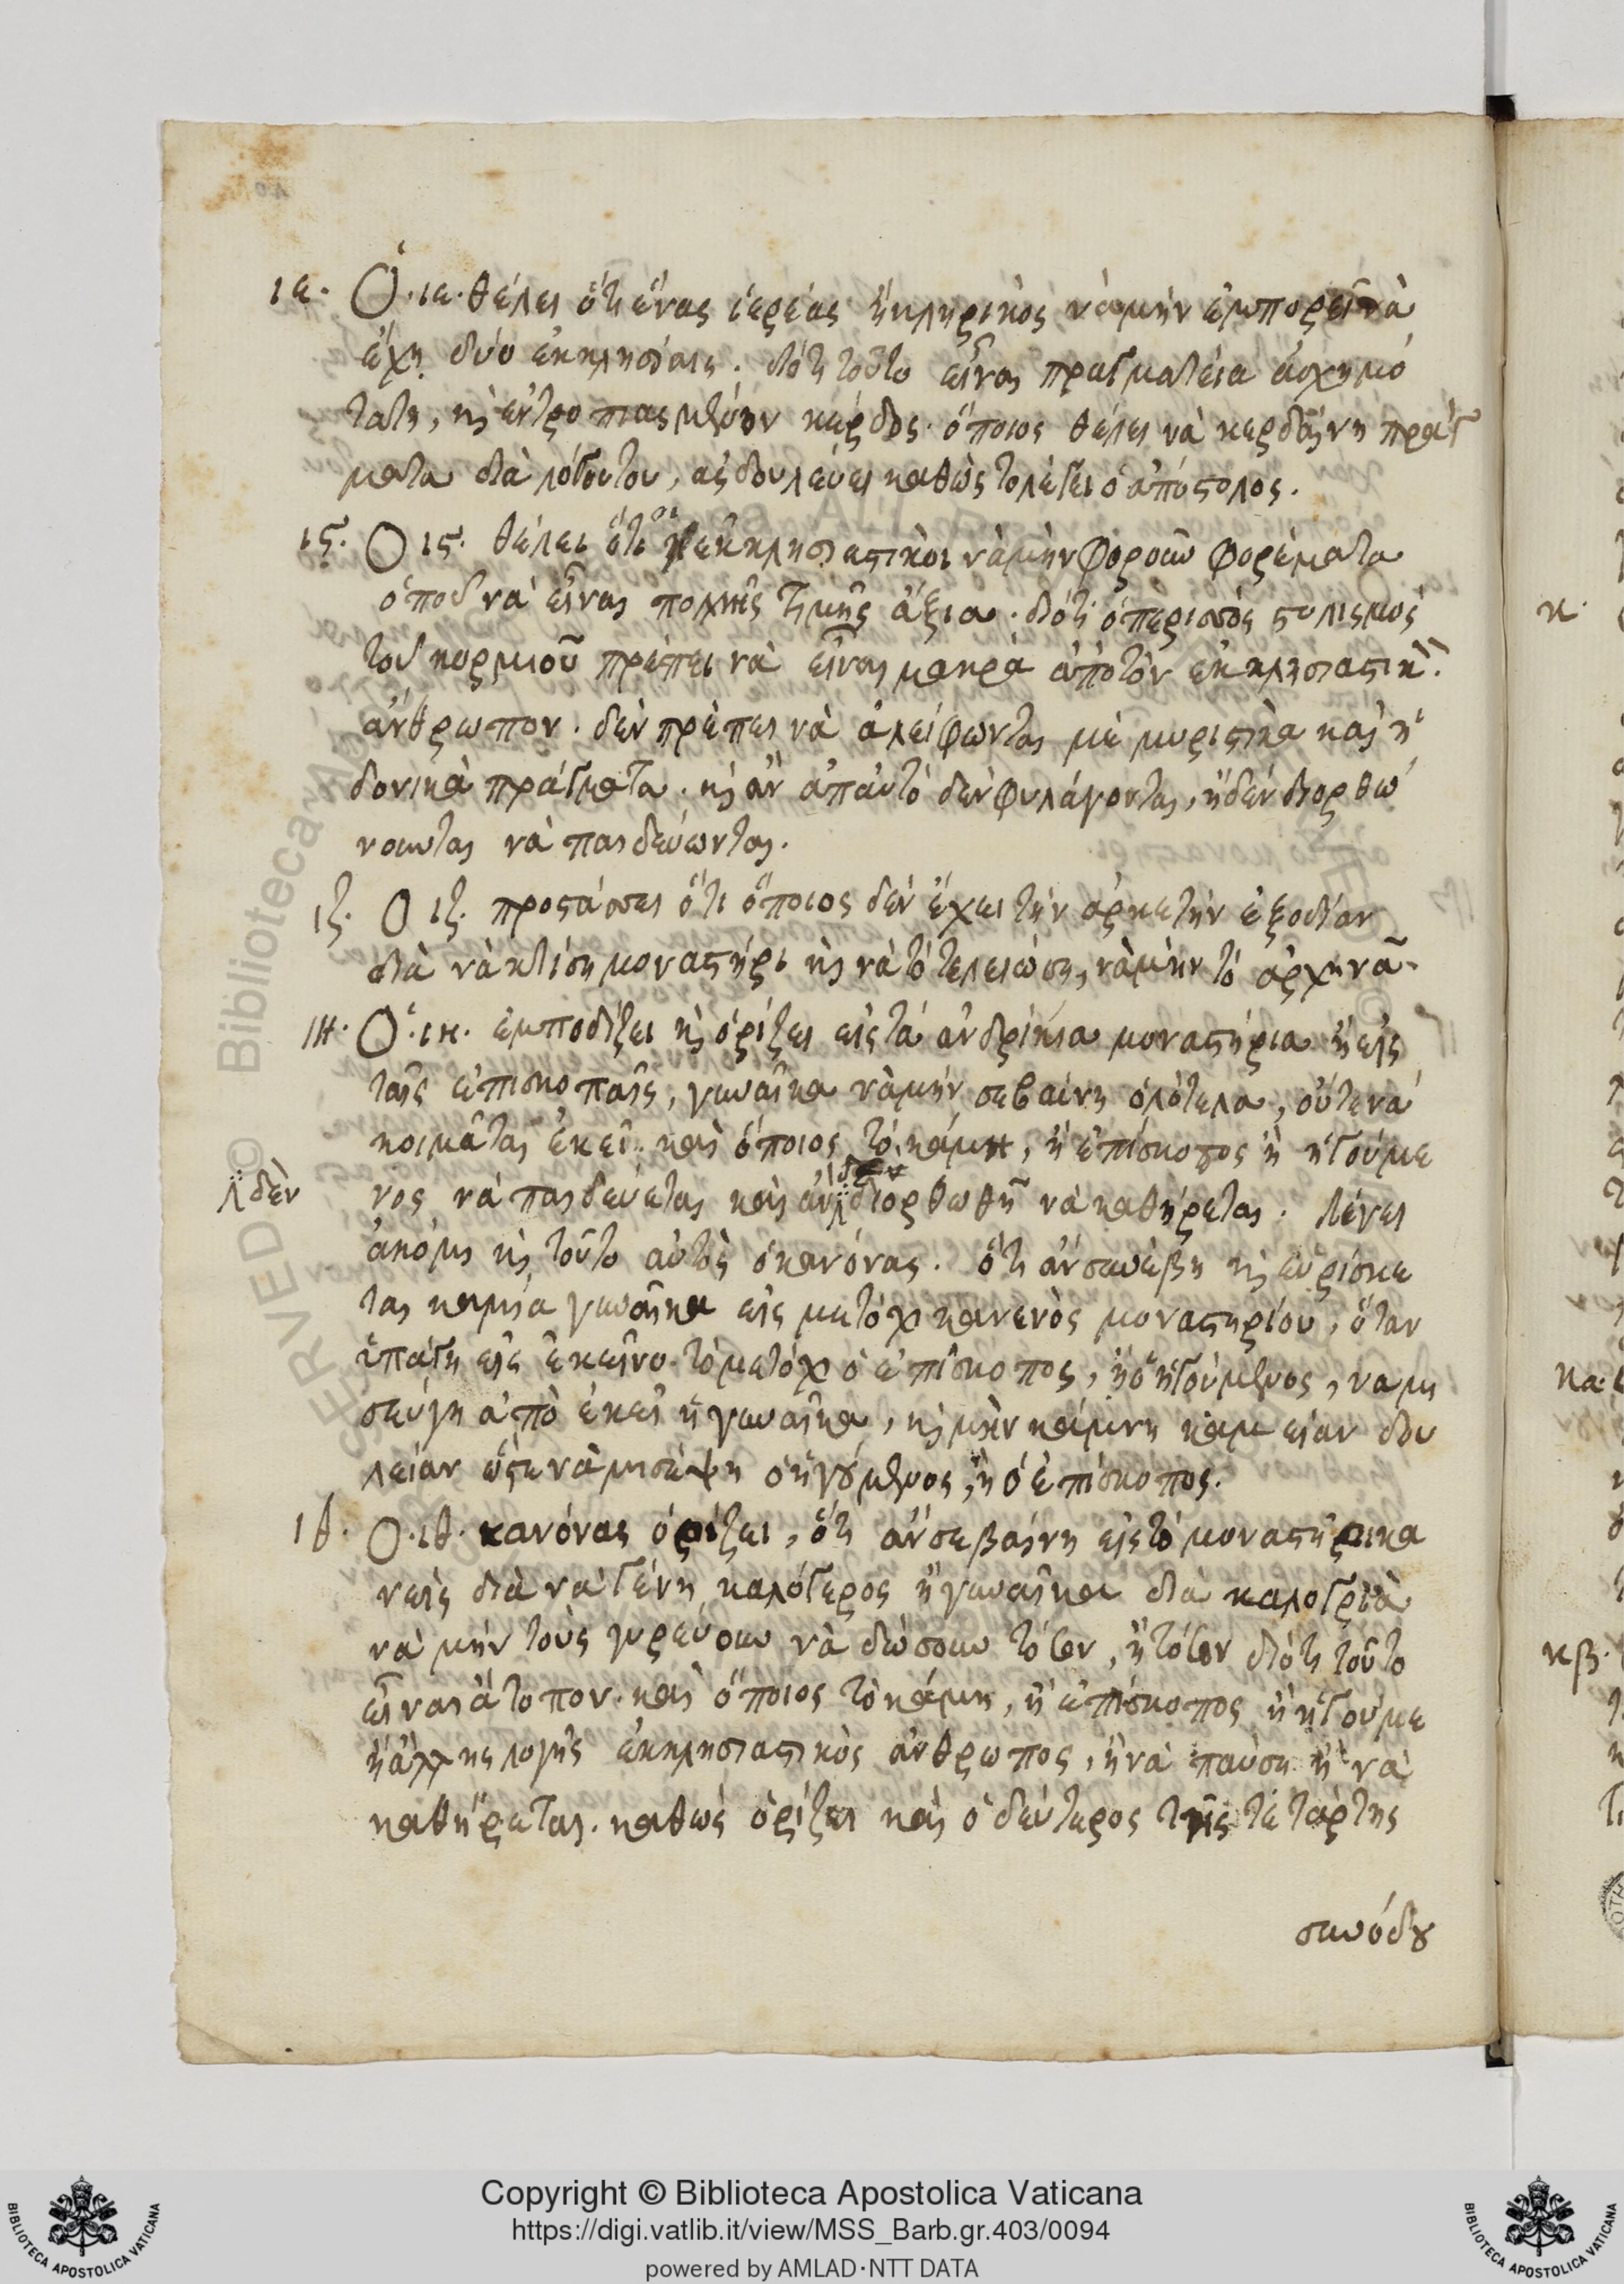 ιε. Ὁ. ιε. θέλει ὅτι ἕνας ἱερέας ἢ κληρικὸς νὰ μὴν ἐμπορεῖ νὰ
ἔχῃ δύο ἐκκλησίαις. διότι τοῦτο εἶναι πραγματεία ἀσχημό
τατη, κ̀ ἐντροπιασμένον κέρδος. ὅποιος θέλει νὰ κερδαίνη πράγ
ματα διὰ λόγουτου, ἂς δουλεύει καθὼς τὸ λέγει ὁ ἀπόστολος.
ιϛ. Ο ιϛ. θέλει ὅτι οἱ ἐκκλησιαστικοὶ νὰ μὴν φοροῦν φορέματα
ὁποῦ νὰ εἶναι πολλῆς τιμῆς ἄξια. διότι ὁ περισσὸς στολισμὸς
τοῦ κορμιοῦ πρέπει νὰ εἶναι μακρὰ ἀπὸ τὸν ἐκκλησιαστικ.
ἄνθρωπον. δὲν πρέπει νὰ ἀλείφωνται μὲ μυριστικὰ καὶ ἡ
δονικὰ πράγματα. κ̀ ἂν ἀπ αὐτὸ δὲν φυλάγονται, ἢ δὲν διορθώ
νουνται νὰ παιδεύωνται.
ιζ. Ο ιζ. προστάσσει ὅτι ὅποιος δὲν ἔχει τὴν ἀρκετὴν ἐξοδίαν
διὰ νὰ κτίση μοναστήρι κ̀ νὰ τὸ τελειώση, νὰ μὴν τὸ ἀρχηνᾶ.
ιη. Ὁ. ιη. ἐμποδίζει κ̀ ὁρίζει εἰς τὰ ἀνδρίκια μοναστήρια ἢ εἰς
ταῖς ἐπισκοπαῖς, γυναῖκα νὰ μὴν σεβαίνη ὁλότελα, οὔτε νὰ
κοιμᾶται ἐκεῖ. καὶ ὅποιος τὸ κάμη, ἢ ἐπίσκοπος ἢ ἡγούμε
δὲν νος νὰ παιδεύεται καὶ ἂν διορθωθῆ νὰ καθήρεται. Λέγει
ἀκόμη κ̀ τοῦτο αὐτὸς ὁ κανόνας. ὅτι ἂν συνέβη κ̀ εὑρίσκε
ται καμμία γυναῖκα εἰς μετόχι κανενὸς μοναστηρίου, ὅταν
ὑπάγη εἰς ἐκεῖνο τὸ μετόχι ὁ ἐπίσκοπος, ἢ ὁ ἡγούμενος, να μι
σεύγη ἀπὸ ἐκεῖ ἡ γυναῖκα, κ̀ μὴν κάμνη καμμίαν δου
λείαν ὥστε νὰ μισέψη ὁ ἡγούμενος, ἢ ὁ ἐπίσκοπος.
ιθ. Ο. ιθ. κανόνας ὁρίζει, ὅτι ἂν σεβαίνη εἰς τὸ μοναστήρι κα
νεὶς διὰ νὰ γένη καλόγερος ἢ γυναῖκα διὰ καλογριὰ
νὰ μὴν τοὺς γυρεύουν νὰ δώσουν τόσον, ἢ τόσον διότι τοῦτο
εἶναι ἄτοπον. καὶ ὅποιος τὸ κάμη, ἢ ἐπίσκοπος ἢ ἡγούμε
ἢ ἄλλης λογῆς ἐκκλησιαστικὸς ἄνθρωπος, ἢ νὰ παύση ἢ νὰ
καθήρεται. καθὼς ὁρίζει καὶ ὁ δεύτερος τῆς τετάρτης
συνόδου
κ.
κα.
κβ.
Copyright © Biblioteca Apostolica Vaticana
https://digi.vatlib.it/view/MSS_Barb.gr.403/0094
powered by AMLAD·NTT DATA